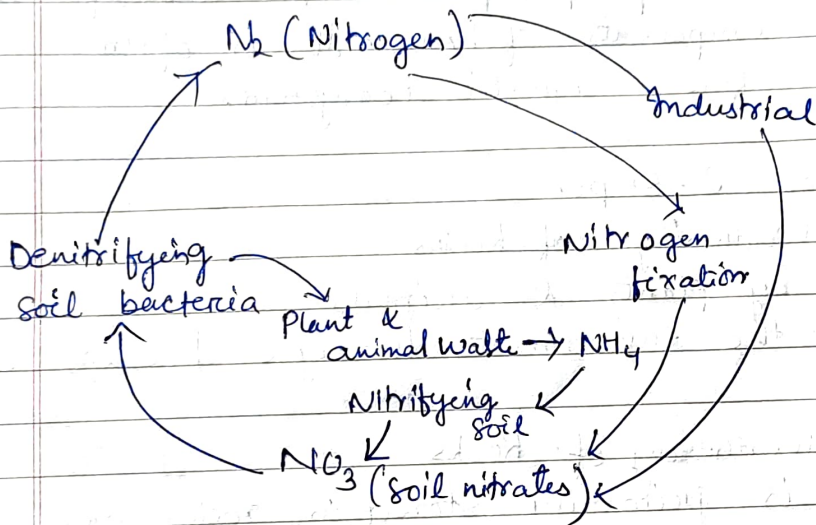 N₂ (Nitrogen)
Industrial
Nitrogen
fixation
Denitrifyeing
soil bacteria
Plant &
animal waste → NH₄
Nitrifyeing
soil
NO₃ (soil nitrates)